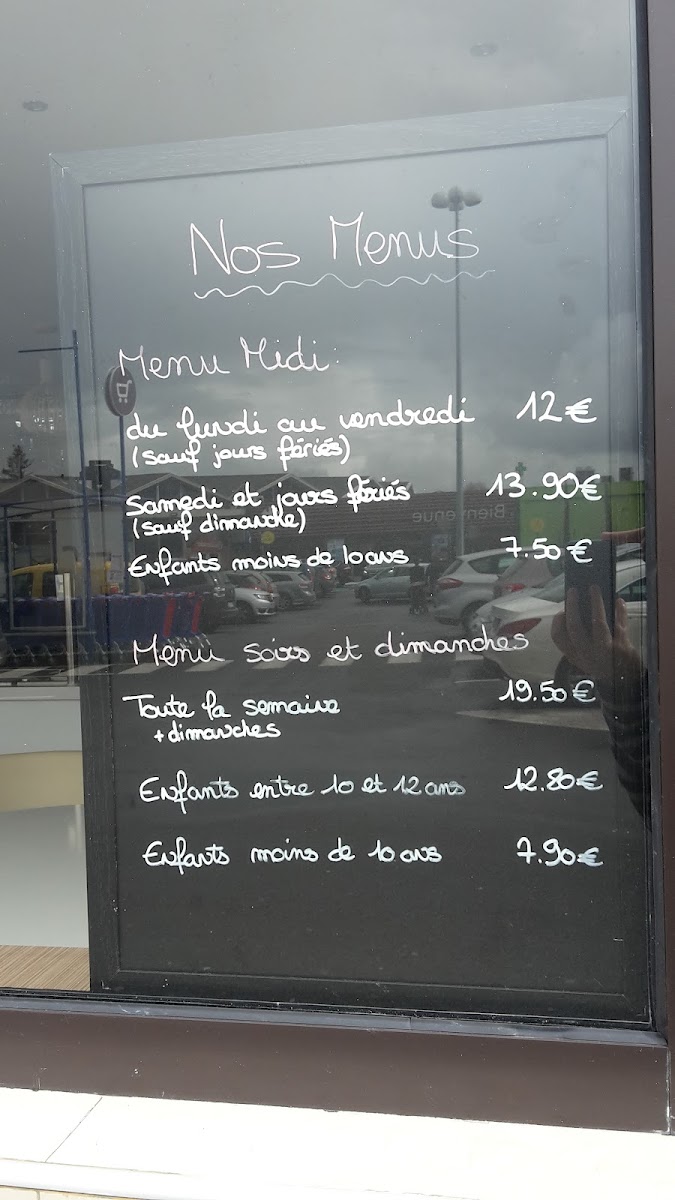 Nos Menus
Menu Midi:
du lundi au vendredi 12€
(sauf jours fériés)
Samedi et jours fériés 13.90€
(sauf dimanche)
Enfants moins de 10 ans 7.50€
Menu soirs et dimanches
Toute la semaine 19.50€
+ dimanches
Enfants entre 10 et 12 ans 12.80€
Enfants moins de 10 ans 7.90€
Bienvenue